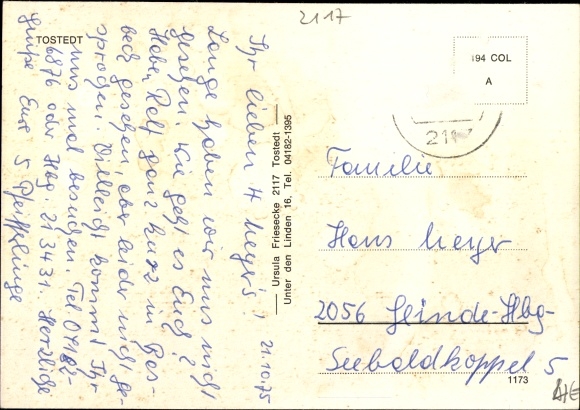 2117
TOSTEDT
21.10.75
Ihr lieben 4 Meyer's!
Lange haben wir uns nicht
gesehen. Wie geht es Euch?
Habe Rolf ganz kurz in
beck gesehen, aber leider nicht ge-
sprochen. Vielleicht kommt Ihr
uns mal besuchen. Tel 04182-
6876 oder Hbg. 213431. Herzliche
Grüße Eure 5
Ursula Friesecke 2117 Tostedt
Unter den Linden 16, Tel. 04182-1395
194 COL
A
211
Familie
Hans Meyer
2056 Glinde-Hbg-
Seeboldkoppel 5
1173